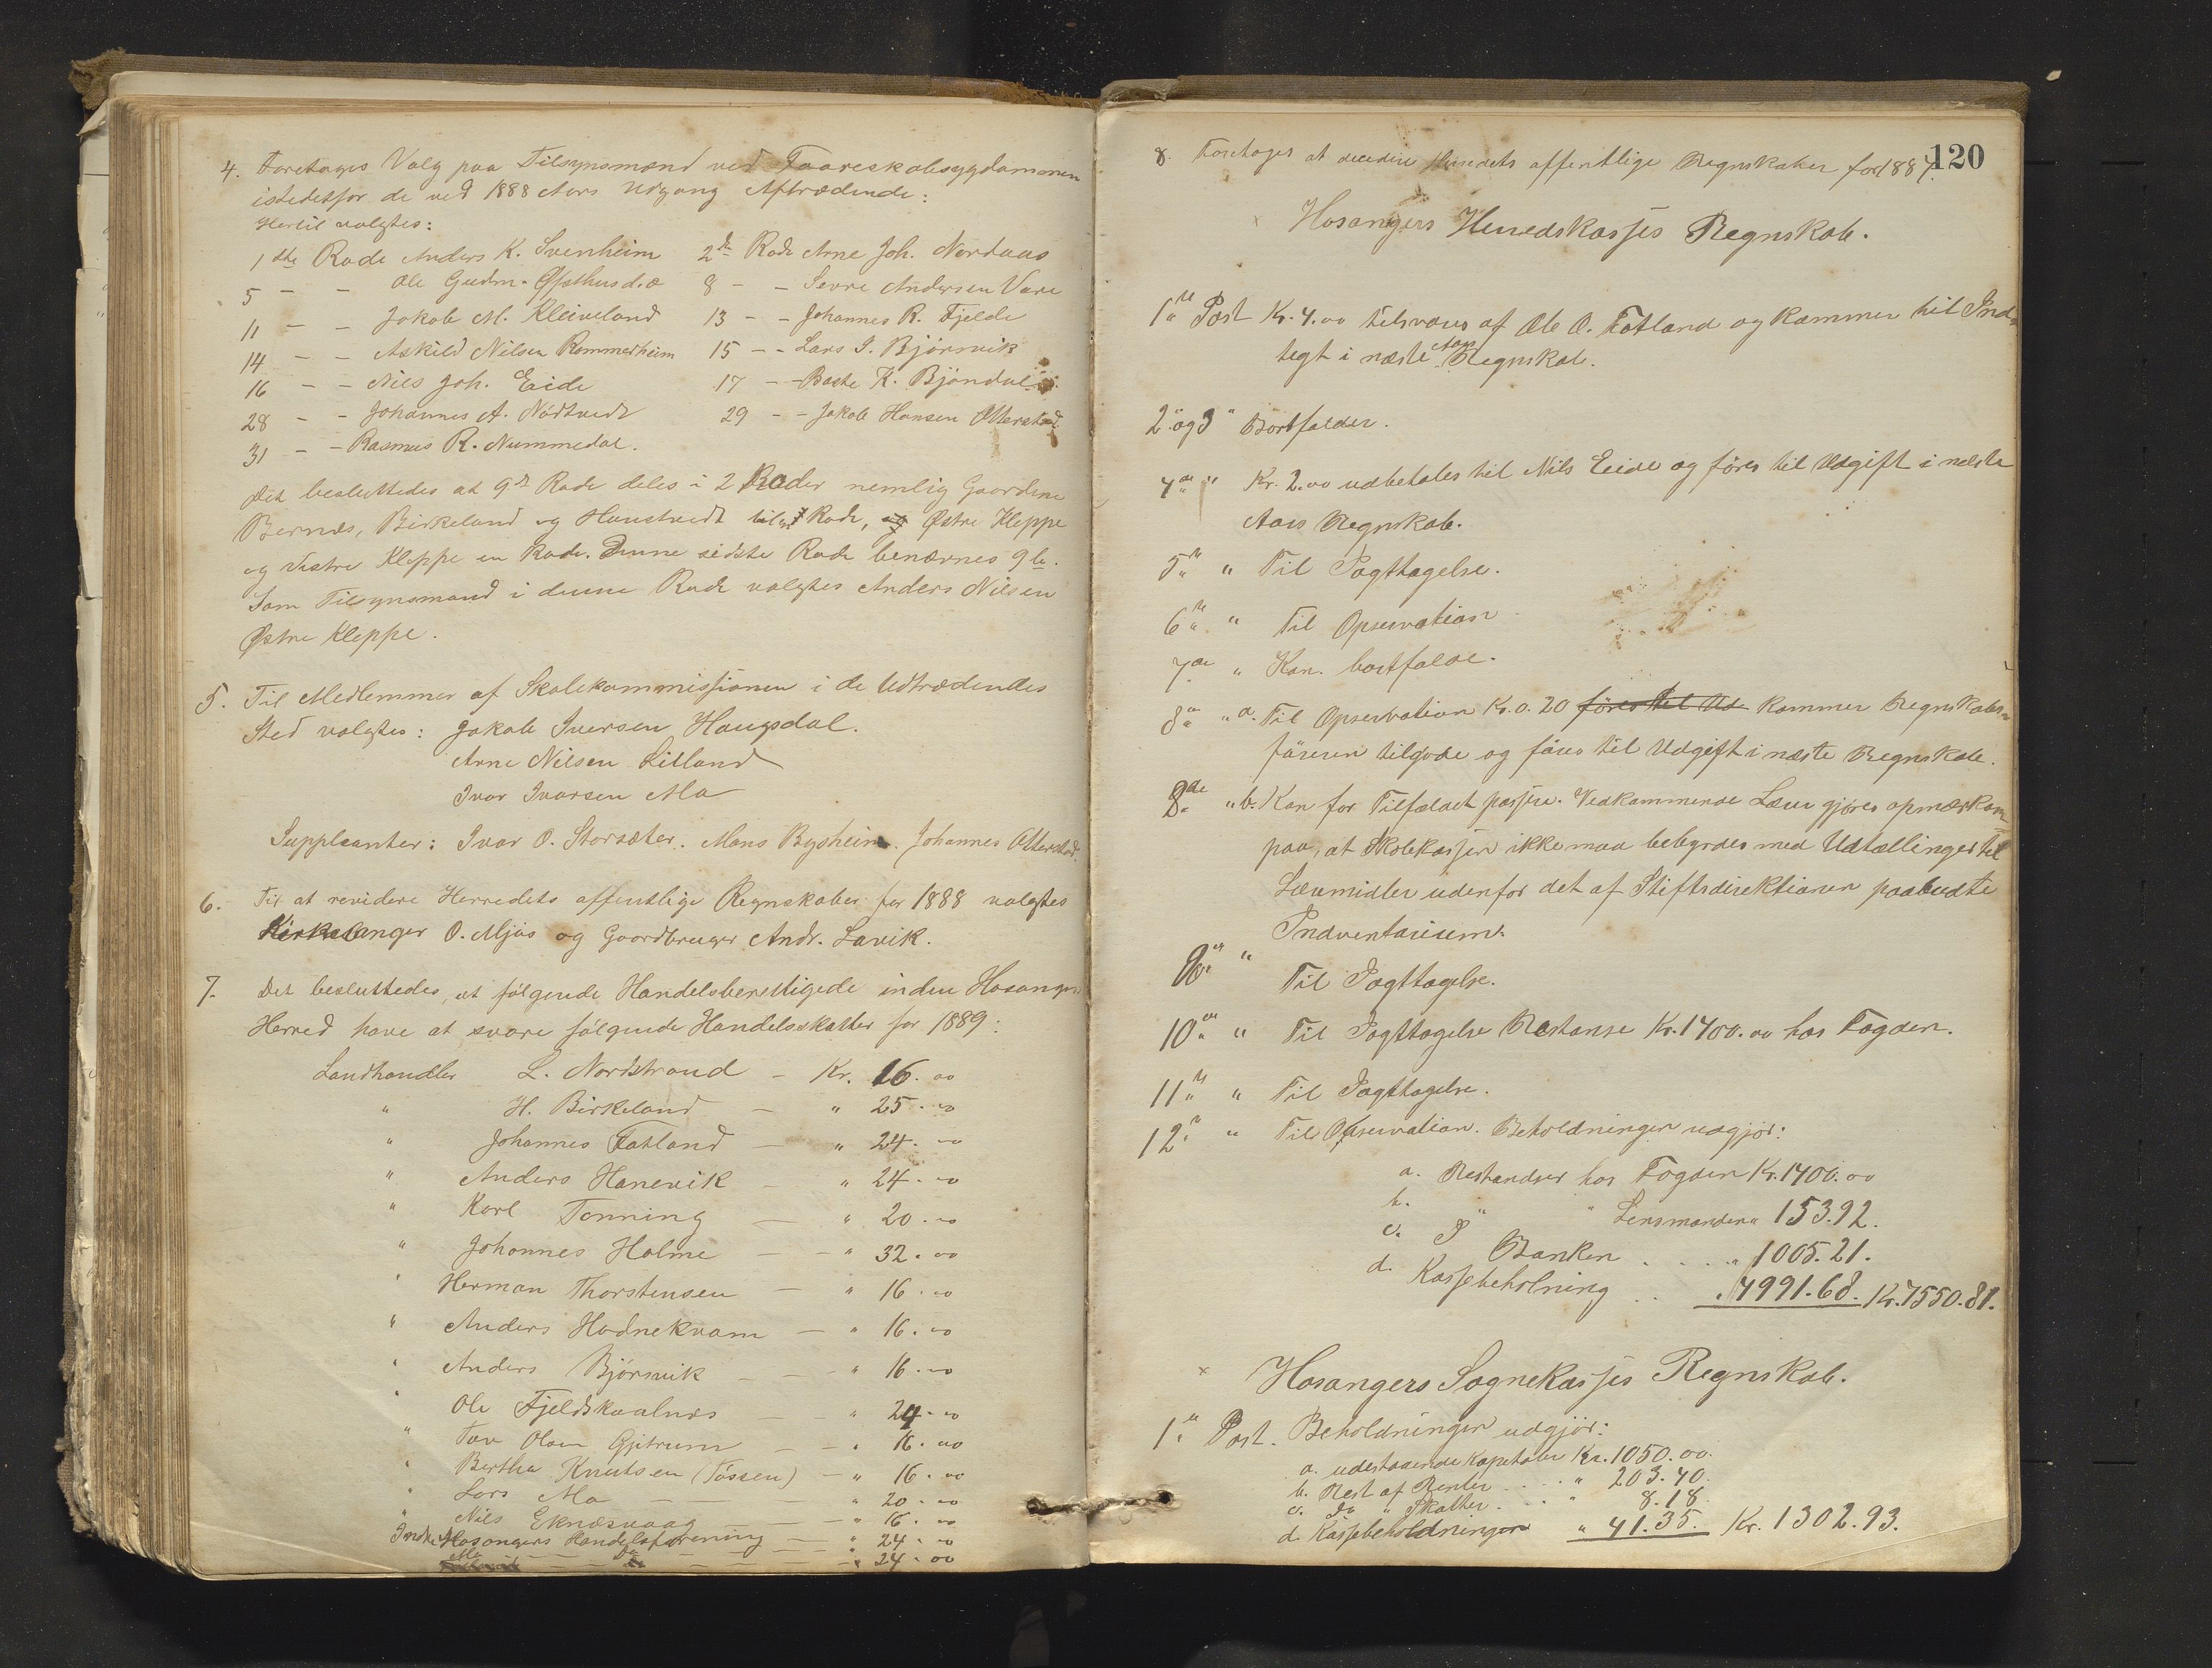 4. Foretages Valg paa Tilsynsmænd ved Faareskabsygdommen
istedetfor de ved 1888 Aars Udgang Aftrædende:
Hertil valgtes:
1ste Rode Anders K. Svenheim 2den Rode Arne Joh. Nordaas
5 - - Ole Gudm. Øfsthus d.æ 8 - - Sevre Andersen Vare
11 - - Jakob M. Kleiveland 13 - - Johannes R. Fjelde
14 - - Askild Nilsen Rommerheim 15 - - Lars I. Bjørsvik
16 - - Nils Joh. Eide 17 - - Baste K. Bjøndal
28 - - Johannes A. Nødtvedt 29 - - Jakob Hansen Otterstad
31 - - Rasmus R. Nummedal.
Det besluttedes at 9de Rode deles i 2 Roder nemlig Gaardene
Bernæs, Birkeland og Haustvedt til 1 Rode, og Østre Kleppe
og Vestre Kleppe en Rode. Denne sidste Rode benævnes 9 b.
Som Tilsynsmand i denne Rode valgtes Anders Nilsen
Østre Kleppe.
5. Til Medlemmer af Skolekommissionen i de Udtrædendes
Sted valgtes: Jakob Iversen Haugsdal.
Arne Nilsen Litland
Ivar Ivarsen Mo
Suppleanter: Ivar O. Storsæter. Mons Bysheim. Johannes Otterstad.
6. Til at revidere Herredets offentlige Regnskaber for 1888 valgtes
Kirkesanger O. Mjøs og Gaardbruger Andr. Lavik.
7. Det besluttedes, at følgende Handelsberettigede inden Hosangers
Herred have at svare følgende Handelsskatter for 1889:
Landhandler L. Nordstrand - Kr. 16.00
" H. Birkeland - " 25.00
" Johannes Fatland - " 24.00
" Anders Hanevik - " 24.00
" Karl Tonning - " 20.00
" Johannes Holme - - " 32.00
" Herman Thorstensen - " 16.00
" Anders Hodnekvam - " 16.00
" Anders Bjørsvik - - " 16.00
" Ole Fjeldskaalnes - - " 24.00
" Tov Olsen Gjitrum - - " 16.00
" Bertha Knutsen (Tössen) - " 16.00
" Lars Mo - - " 20.00
" Nils Eknæsvaag - - " 16.00
Indre Hosangers Handelsforening - " 24.00
Mo - Do - - - " 24.00
120
8. Foretages at decidere Herredets offentlige Regnskaber for 1887.
Hosangers Herredskasses Regnskab.
1ste Post Kr. 4.00 tilsvares af Ole O. Fotland og kommer til Ind-
tegt i næste Aars Regnskab.
2 og 3 " Bortfalder.
4de " Kr. 2.00 udbetales til Nils Eide og føres til Udgift i næste
Aars Regnskab.
5te " Til Iagttagelse.
6te " Til Opservation
7de " Kan bortfalde.
8de " a. Til Opservation Kr. 0.20 føres til Ud- kommer Regnskabs-
føreren tilgode og føres til Udgift i næste Regnskab.
8de " b. Kan for Tilfældet passere. Vedkommende Lærer gjøres opmærksom
paa, at Skolekassen ikke maa bebyrdes med Udtællinger til
Læremidler udenfor det af Stiftsdirektionen paabudte
Indventarium.
9de " Til Iagttagelse.
10de " Til Iagttagelse Restanse Kr. 1400.00 hos Fogden.
11te " Til Iagttagelse.
12te " Til Observation. Beholdningen udgjør:
a. Restandser hos Fogden Kr. 1400.00
b. " " Lensmanden " 153.92.
c. I Banken . . . . " 1005.21.
d. Kassebeholning . . " 4991.68. Kr. 7550.81.
Hosangers Sognekasses Regnskab.
1ste Post. Beholdningen udgjör:
a. udestaaende Kapitaler Kr. 1050.00.
b. Rest af Renter . . . " 203.40.
c. Do " Skatter . . . " 8.18
d. Kassebeholdningen " 41.35. Kr. 1302.93.